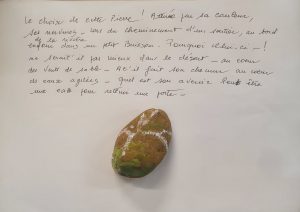 Le choix de cette Pierre ! Attirée par sa couleur
ses nervures - lors du cheminement d'un sentier, au bord
de la rivière
dans un petit Buisson. Pourquoi celui-ci - !
ne serait il pas mieux dans le désert - au coeur
des vents de sable - A t'il fait son chemin au coeur
de eaux agitées - Quel est son avenir Peut être
une cale pour retenir une porte -